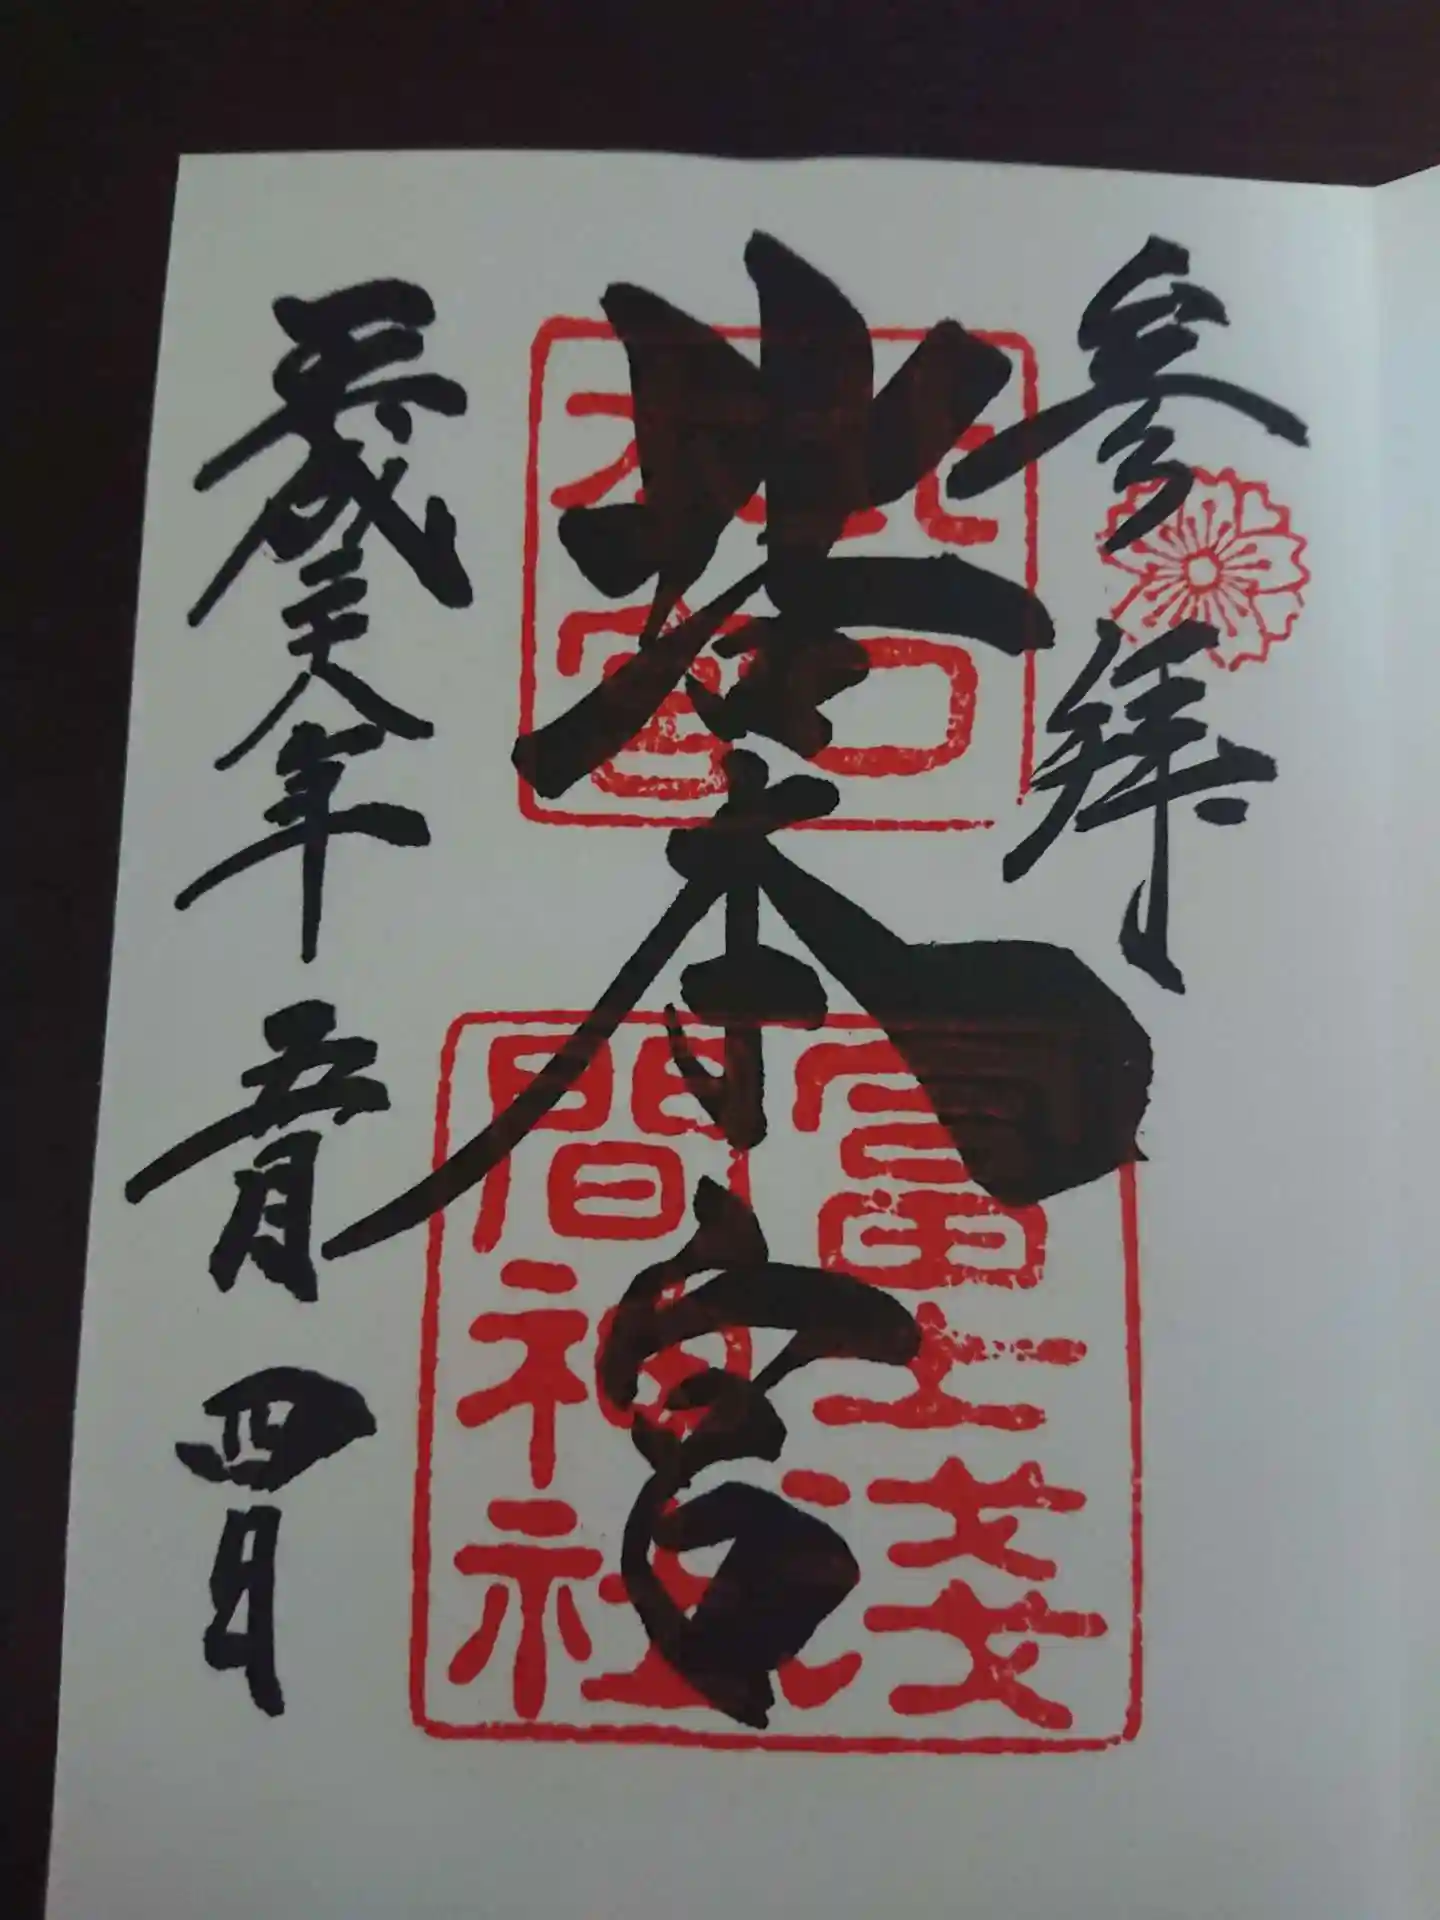 参拝
北口本宮
平成二十八年五月四日
北口
本宮
冨士淺
間神社